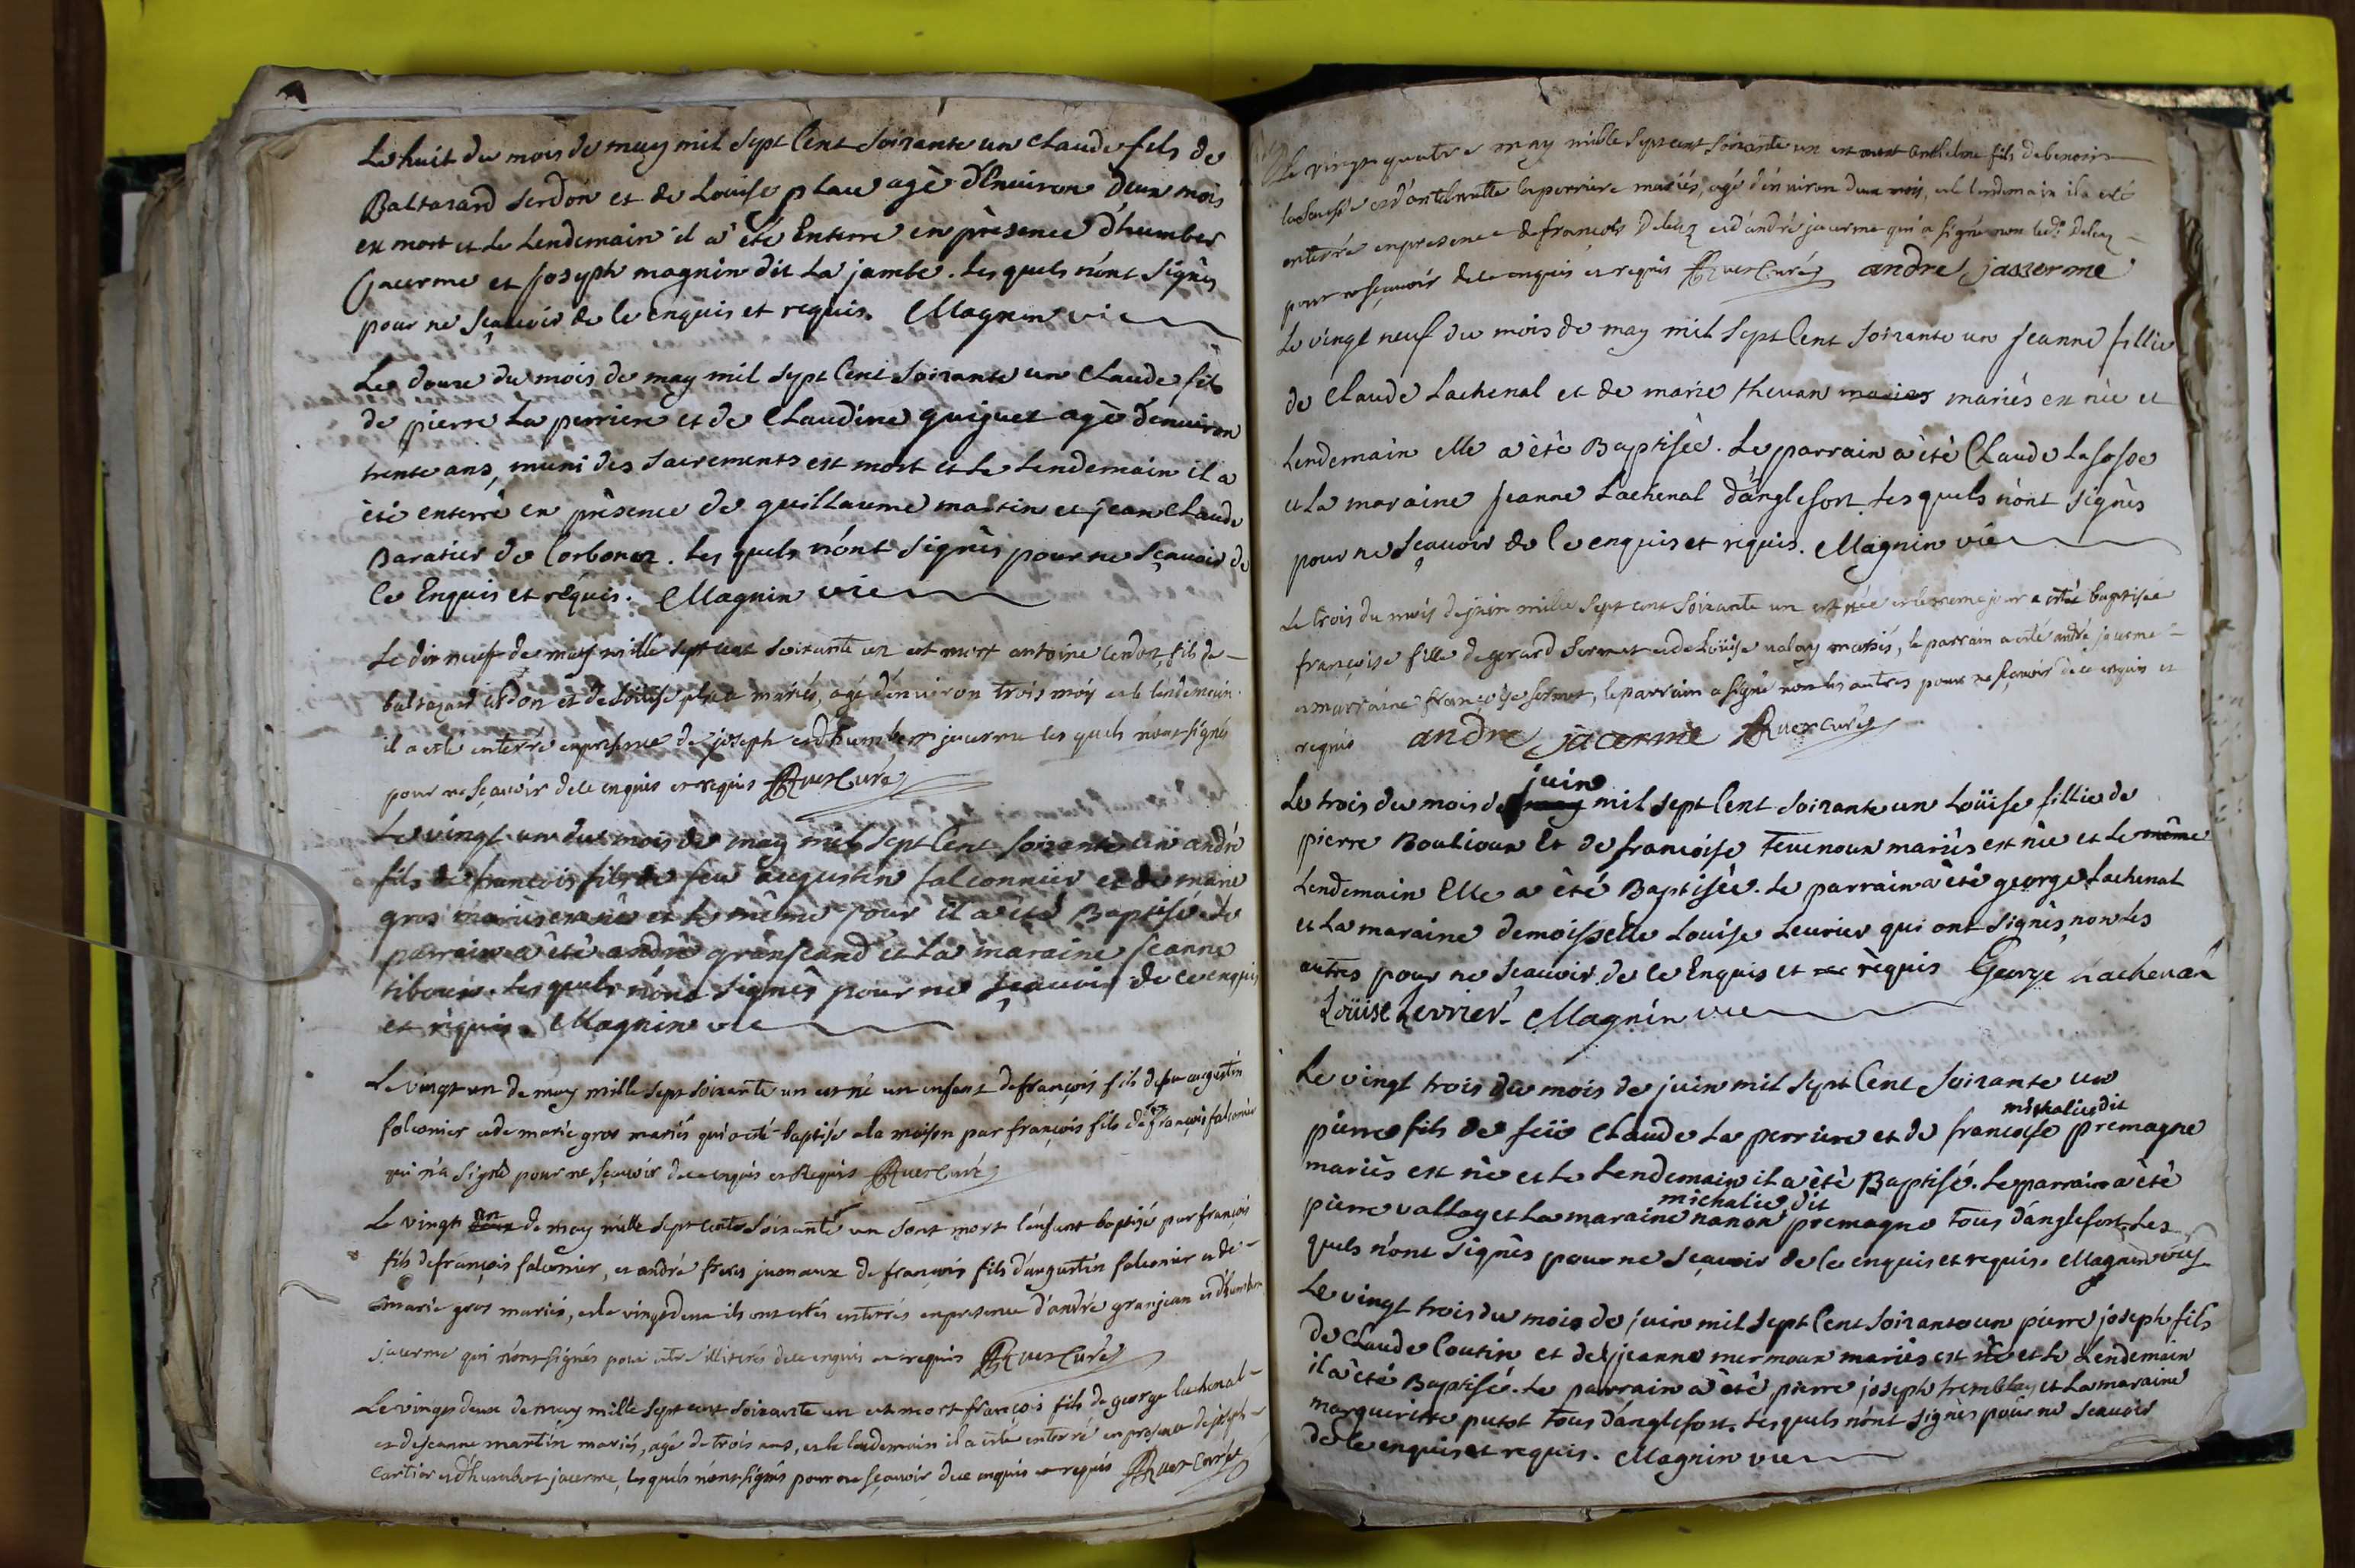 Le huit du mois de may mil sept Cent Soixante un Claude fils de
Baltasard Serdon et de Louise place agè d'Environ deux mois
ex mort et le Lendemain il a été Enterre en prèsence d'humber
jacerme et Joseph magnin dit La jambe. les quels n'ont Signès
pour ne Sçauoir de ce enquis et requis. Magnin vic
Le douze du mois de may mil sept Cent Soixante un Claude fils
de pierre La perriere et de Claudine guiguet agè denuiron
trente ans, muni des Sacrements est mort et Le Lendemain il a
èté enterrè en prèsence de guillaume martin et jean Claude
Baratier de Corbonoz. les quels n'ont Signès pour ne Sçauoir de
Ce Enquis et rèquis. Magnin vic
Le dix neuf de may mille sept cent Soixante un est mort antoine Cerdon, fils de
baltazard cerdon et de Loüise place mariés, agé d'enuiron trois moy et le lendemain
il a esté enterré en presence de joseph et d'humbert jacerme les quels n'ont signé
pour ne sçauoir de ce enquis et requis Curé
Le vingt un du mois de may mil sept Cent Soixante un andré
fils de francois fils de feu augustin falconnier et de marie
gros mariès ex nè et le même jour il a èté Baptisé le
parrain a èté andrè granjeand et La maraine jeanne
les quels n'ont Signès pour ne sçauoir de ce enquis
et rèquis. Magnin vic
Le vingt un de may mille sept soixante un est né un enfant de françois fils de feu augustin
falconier et de marie gros mariés qui a esté baptisé a la maison par françois fils de feu françois falconier
qui n'a signé pour ne sçauoir de ce enquis et Requis Curé
Le vingt un de may mille sept cents Soixante un sont mort l'enfant baptisé par françois
fils de françois falconier, et andré freres jumeaux de françois fils d'augustin falconier et de
marie gros mariés, et le vingt deux ils ont estés enterrés en presence d'andré granjean et d'humbert
jacerme qui n'ont signés pour estre illiterés de ce enquis et requis Curé
Le vingt deux de may mille sept cent soixante un est mort françois fils de george lachenal
et de jeanne martin mariés, agé de trois ans, et le lendemain il a esté enterré en presence de joseph
Cartier et d'humbert jacerme, les quels n'ont signés pour ne sçauoir de ce enquis et requis Curé
Le vingt quatre may mille sept cent soixante un est mort Anthelme fils de benoit
et d'antelmette laperriere mariés, agé d'enuiron deux mois, et le lendemain il a esté
enterré en presence de françois deluz et d'andré jacerme qui a signé non led. deluz
pour ne sçauoir de ce enquis et requis Curé andre jasserme
Le vingt neuf du mois de may mil Sept Cent Soixante un jeanne fillie
de Claude Lachenal et de marie thevan mariès mariès ex nèe et
Lendemain elle a èté Baptisèe. Le parrain a èté Claude Lafosse
et La maraine jeanne Lachenal d'anglefort les quels n'ont signès
pour ne Sçauoir de Ce enquis et rèquis. Magnin vic
Le trois du mois de juin mille sept cent Soixante un est née et le meme jour a esté baptisée
françoise fille de gerard sermet et de Loüise valoy mariés, le parrain a esté andré jacerme
et marraine françoise sermet, le parrain a signé non les autres pour ne sçauoir de ce enquis et
requis andre jacerme Curé
juin
Le trois du mois de may mil sept Cent Soixante un Loüise fillie de
pierre Boulioux Et de francoise Teuenoux mariès est nèe et Le même
Lendemain Elle a èté Baptisèe. Le parrain a èté george Lachenal
et La maraine demoisselle Louise Leurier qui ont Signès, non Les
autres pour ne Sçauoir de Ce Enquis et rèquis George Lachenal
Loüise Levrier Magnin vic
Le vingt trois du mois de juin mil sept Cent Soixante un
michalie dit
pierre fils de feüe Claude La perriere et de francoise premagne
mariès est nè et Le Lendemain il a èté Baptisé. Le parrain a èté
michalie dit
pierre vallay et La maraine nanon premagne tous d'anglefort. Les
quels n'ont Signès pour ne Sçauoir de Ce enquis et requis. Magnin vic
Le vingt trois du mois de juin mil sept Cent Soixante un pierre joseph fils
de Claude Coutin et de jeanne mermoux mariès est nè et Le Lendemain
il a èté Baptisé. Le parrain a èté pierre joseph tremblay et La maraine
margueritte putot tous d'anglefort. les quels n'ont Signès pour ne Scauoir
de Ce enquis et requis. Magnin vic